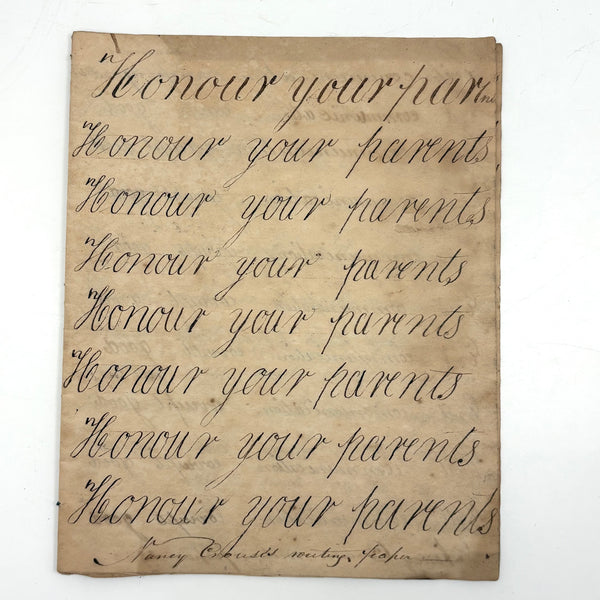 Honour your par
Honour your parents
Honour your parents
Honour your parents
Honour your parents
Honour your parents
Honour your parents
Honour your parents
Nancy writing paper